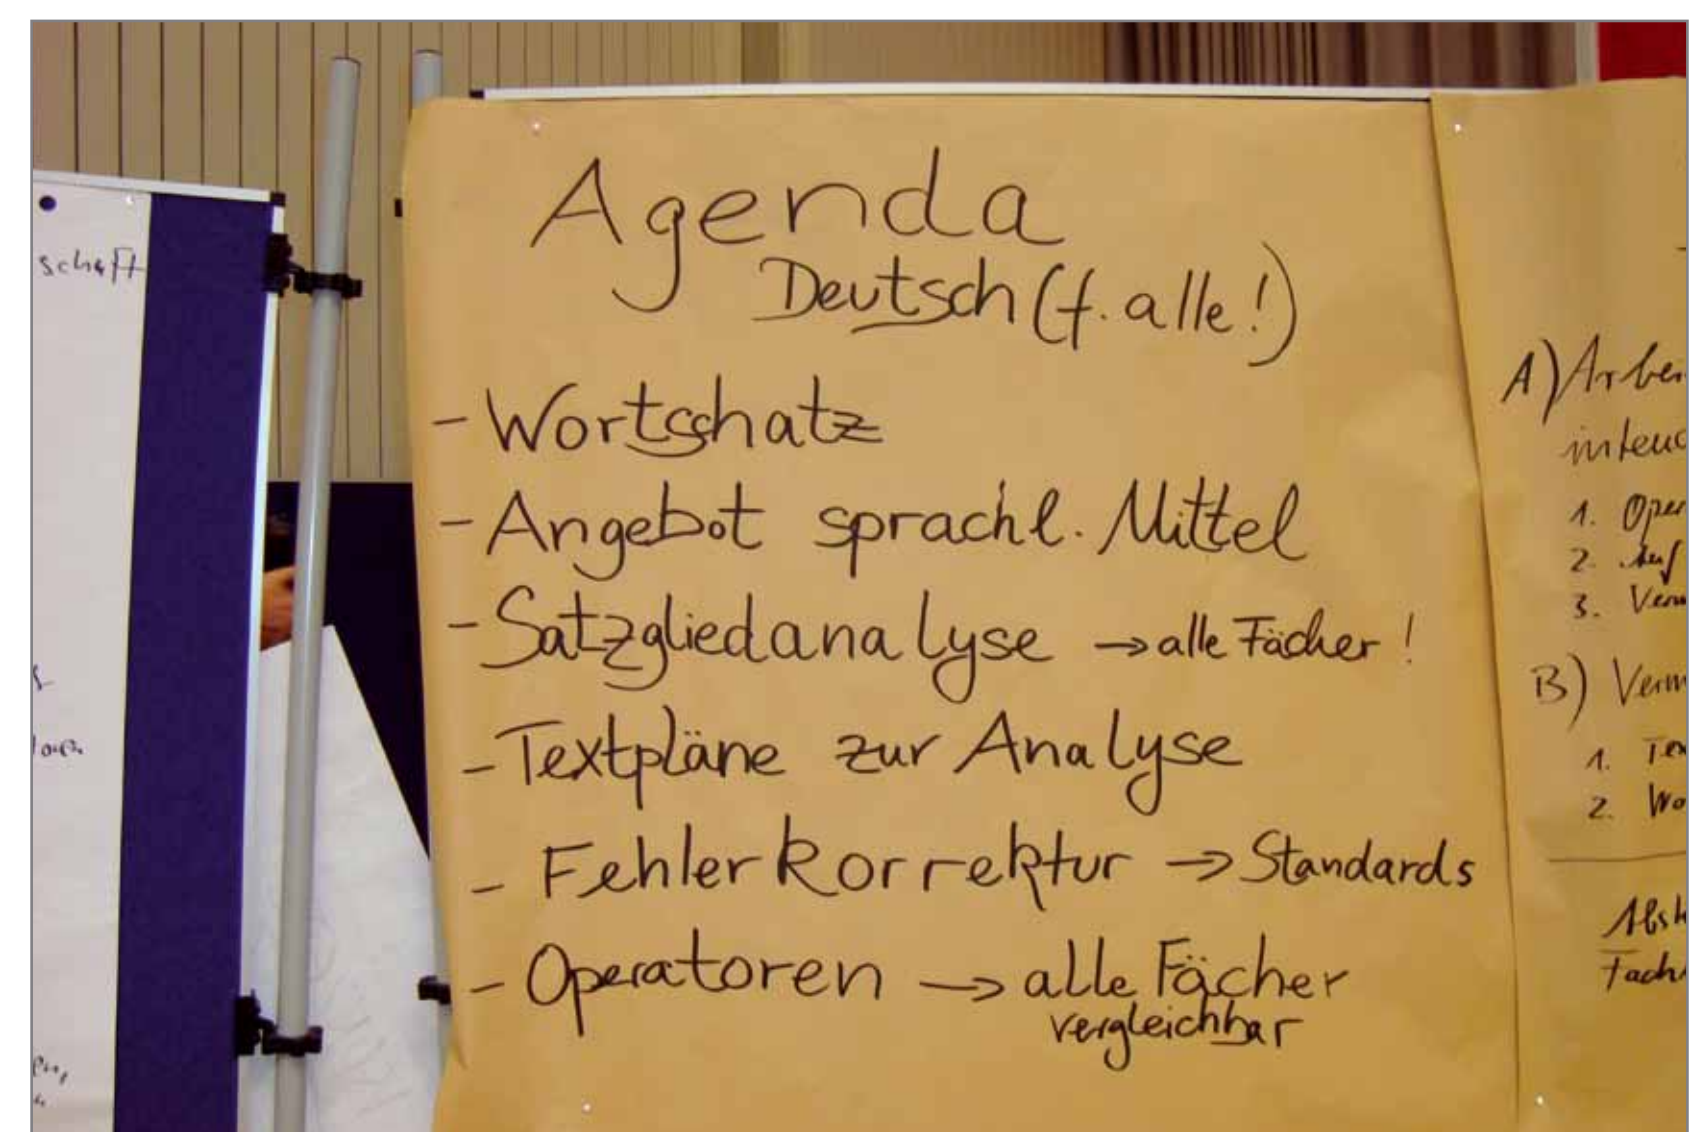 schaft
Agenda
Deutsch (f. alle!)
- Wortschatz
- Angebot sprachl. Mittel
- Satzgliedanalyse → alle Fächer!
- Textpläne zur Analyse
- Fehlerkorrektur → Standards
- Operatoren → alle Fächer
vergleichbar
A)
1. Oper
2.
3.
B) Verm
1.
2. Wo
Fach